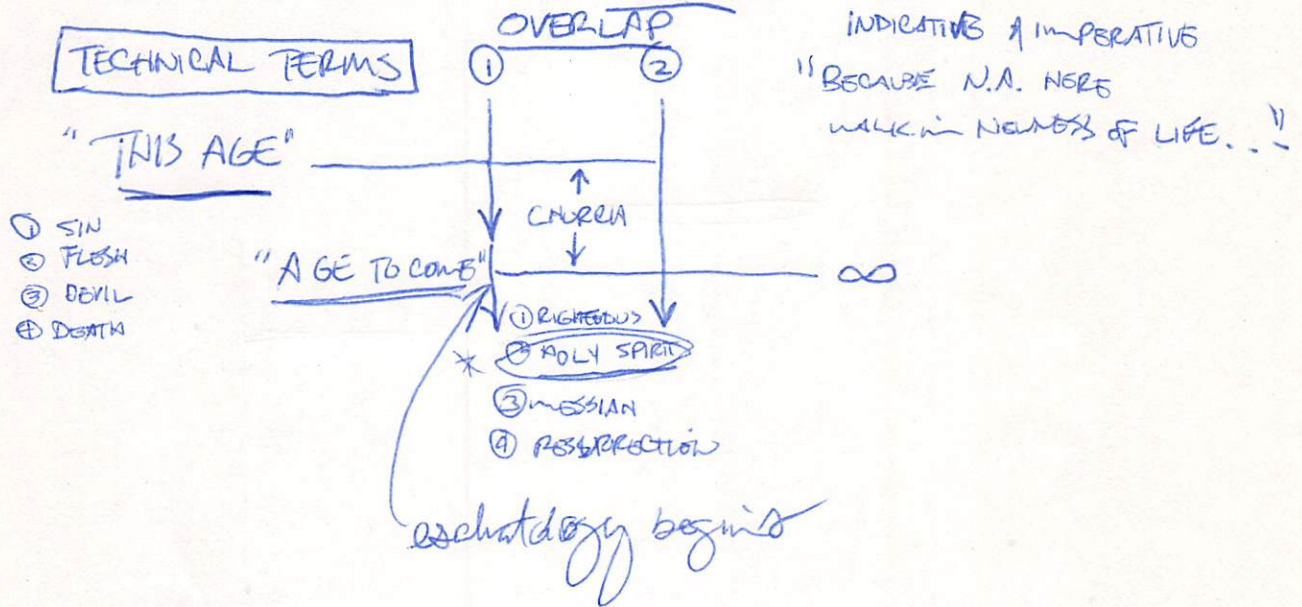 OVERLAP
TECHNICAL TERMS
① ②
INDICATIVE & IMPERATIVE
"BECAUSE N.A. HERE
WALK in NEWNESS OF LIFE..."
"THIS AGE"
CHURCH
① SIN
② FLESH
③ DEVIL
④ DEATH
"AGE TO COME" ∞
① RIGHTEOUS
* ② HOLY SPIRIT
③ MESSIAH
④ RESSURRECTION
eschatology begins